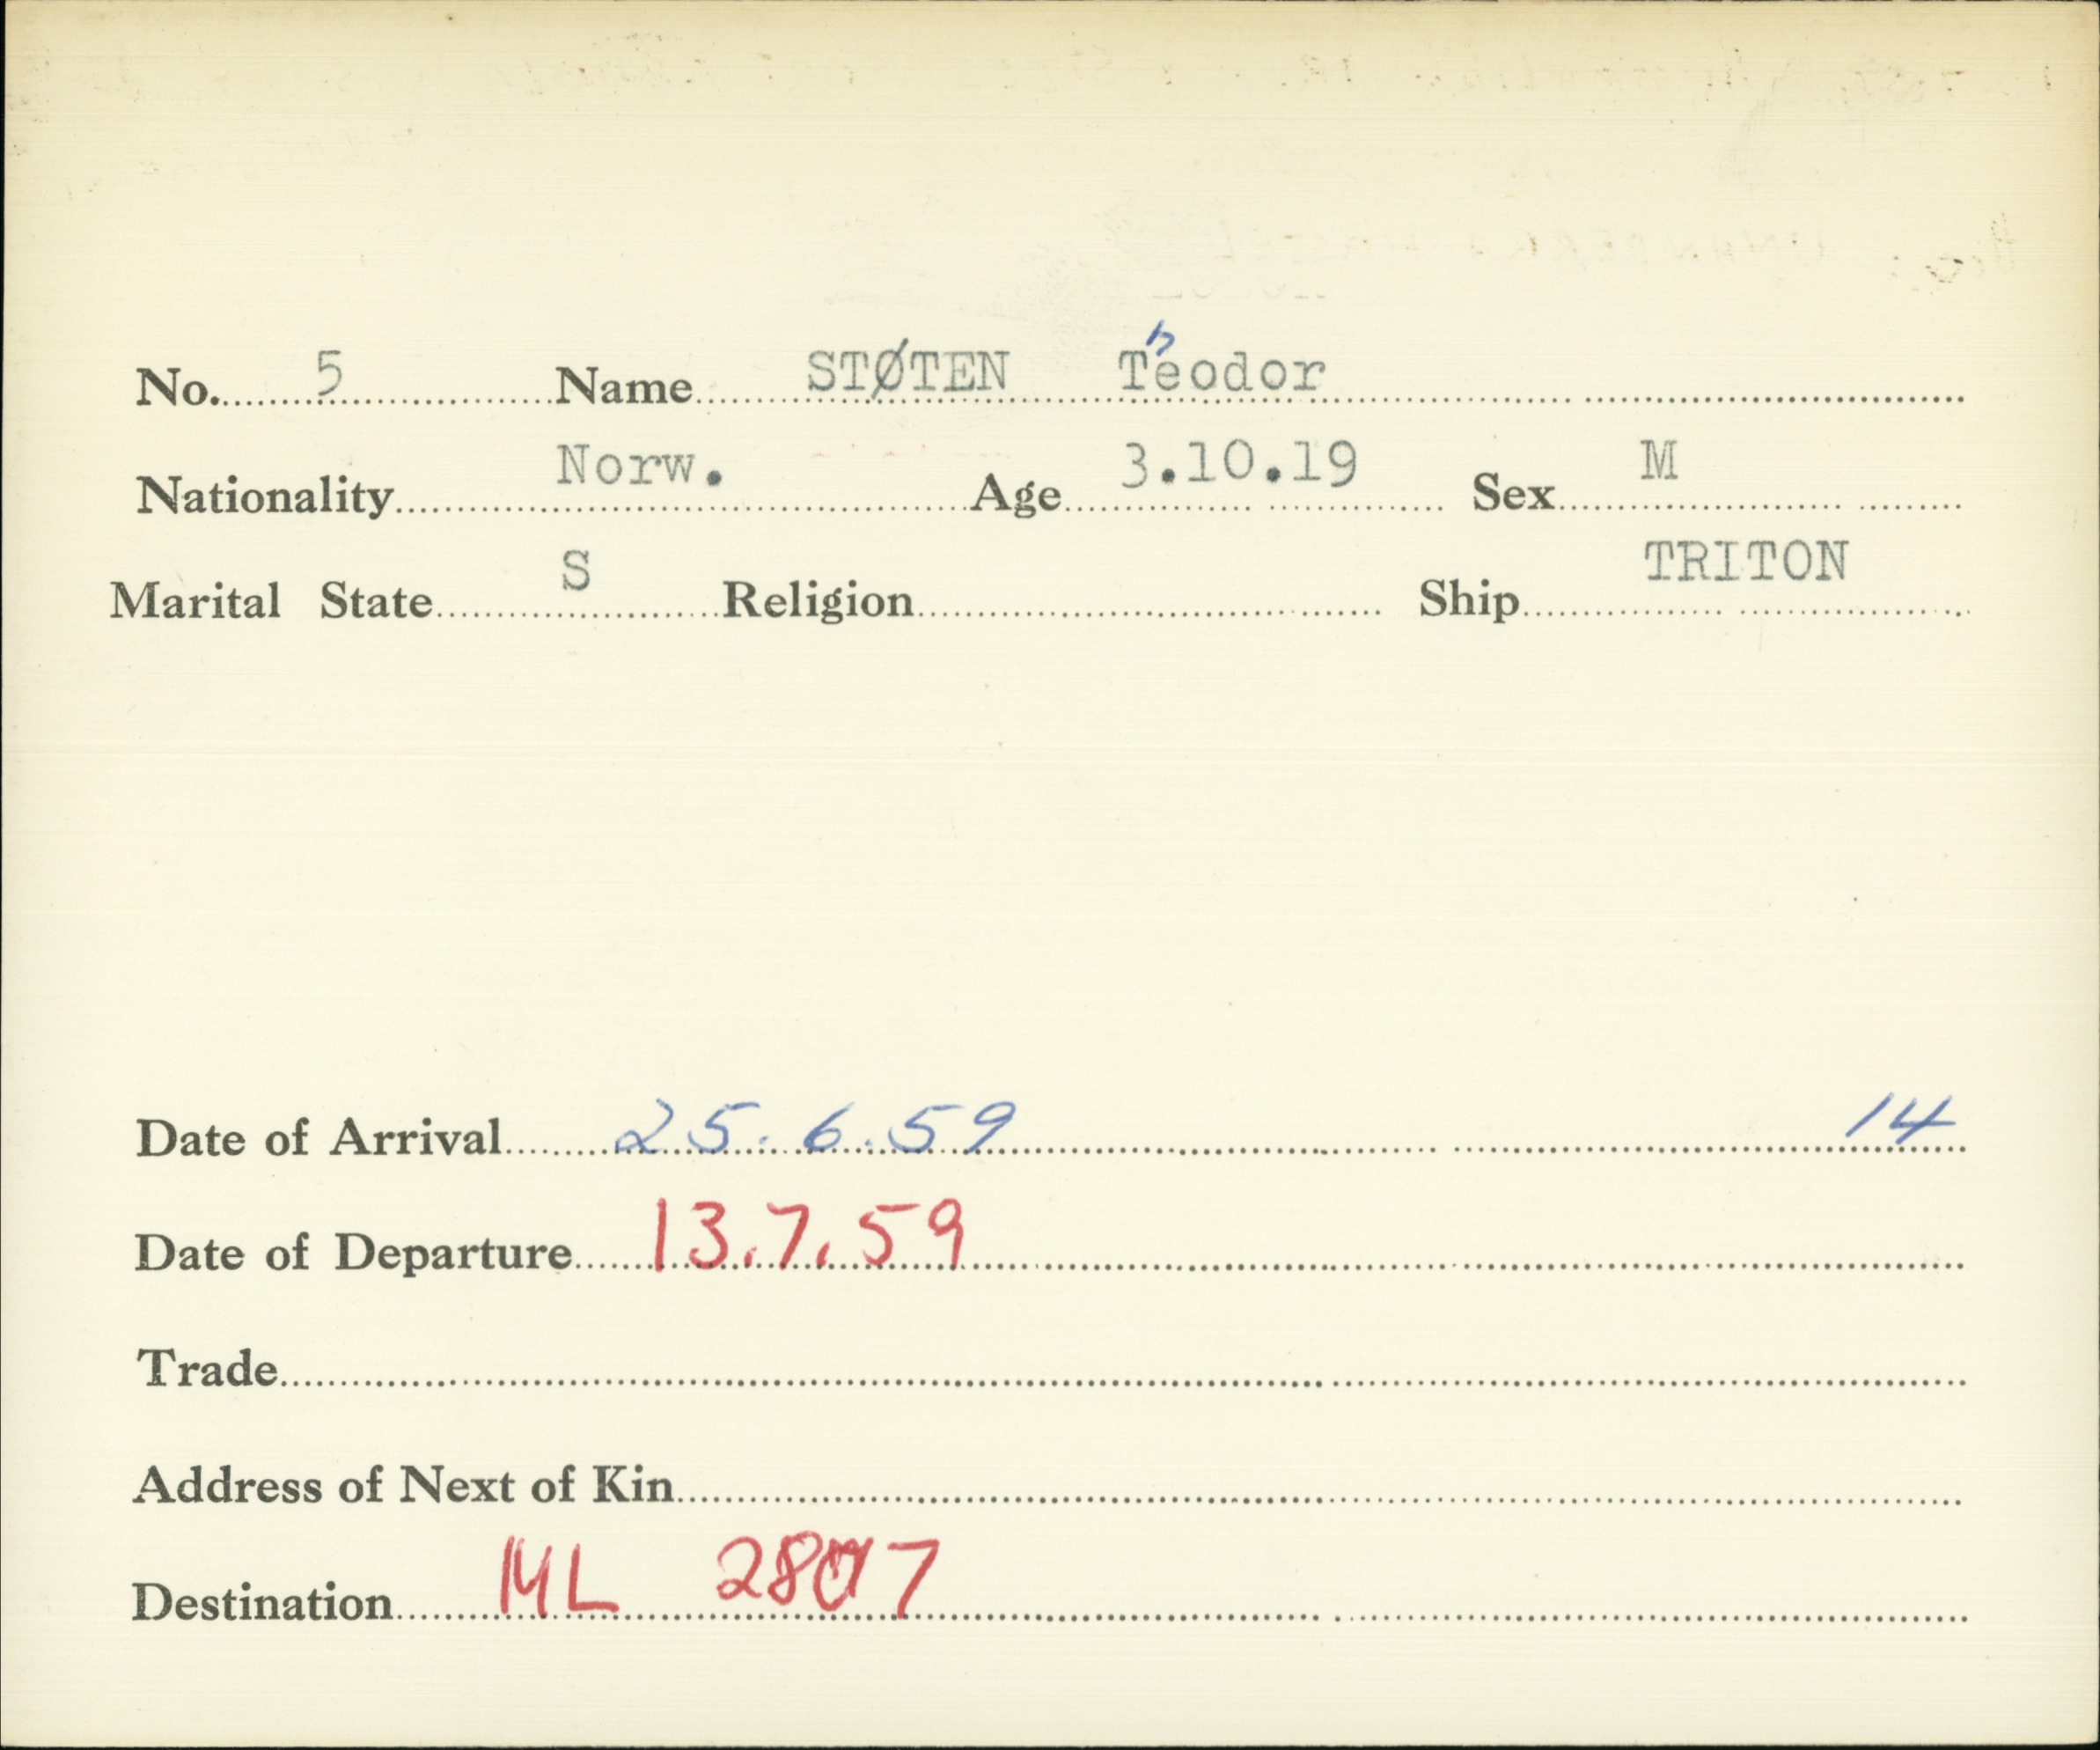 No. 5 Name STØTEN Theodor
Nationality Norw. Age 3.10.19 Sex M
Marital State S Religion Ship TRITON
Date of Arrival 25.6.59 14
Date of Departure 13.7.59
Trade
Address of Next of Kin
Destination ML